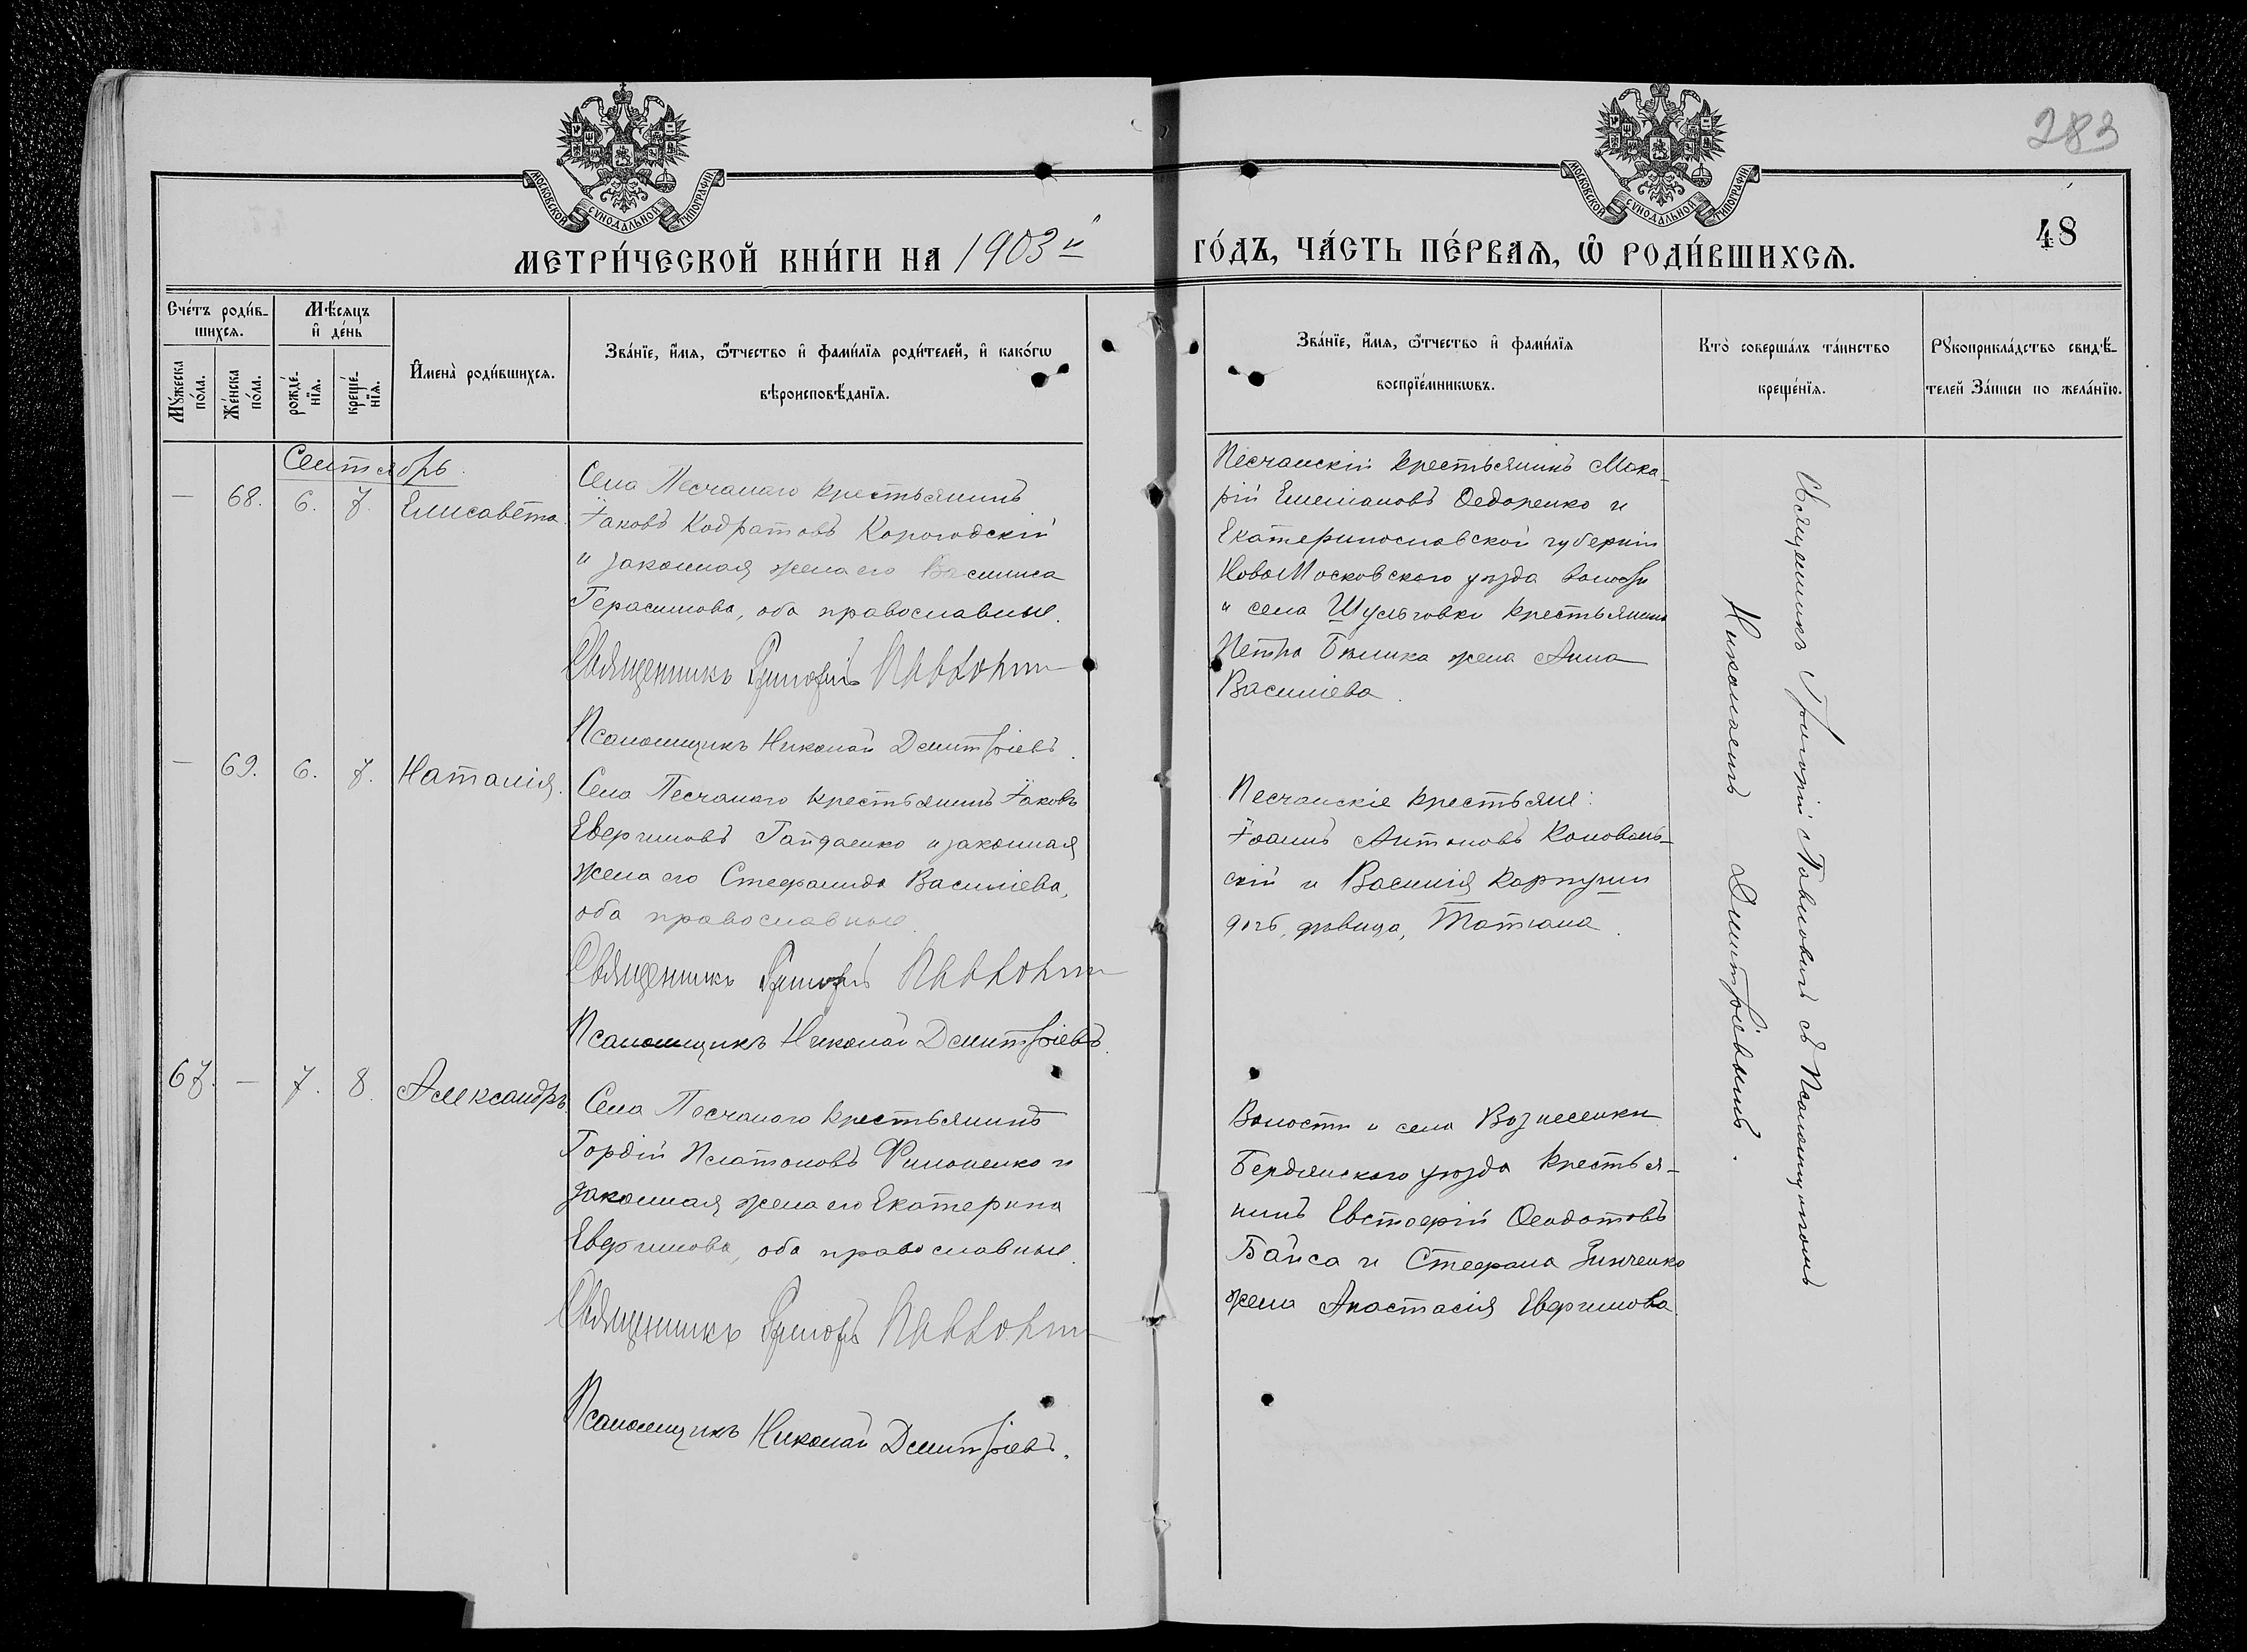 283
48
МОСКОВСКОЙ СѴНОДАЛЬНОЙ ТИПОГРАФІИ
МОСКОВСКОЙ СѴНОДАЛЬНОЙ ТИПОГРАФІИ
МЕТРИ́ЧЕСКОЙ КНИ́ГИ НА 1903й
ГО́ДЪ, ЧА́СТЬ ПЕ́РВАѦ, Ѡ҆ РОДИ́ВШИХСѦ.
Сче́тъ роди́в-
шихсѧ.
Мꙋ́жеска по́ла.
Же́нска по́ла.
Мѣ́сѧцъ
и҆ де́нь
рожде́-нїѧ.
креще́-нїѧ.
И҆мена̀ роди́вшихсѧ.
Зва́нїе, и҆́мѧ, ѻ҆́тчество и҆ фами́лїѧ роди́телей, и҆ како́гѡ
вѣроисповѣ́данїѧ.
Зва́нїе, и҆́мѧ, ѻ҆́тчество и҆ фами́лїѧ
воспрїе́мникѡвъ.
Кто̀ соверша́лъ та́инство
креще́нїѧ.
Рꙋкоприкла́дство свидѣ́-
телей За́писи по жела́нїю.
Сентябрь.
— 68. 6. 7. Елисавета.
Села Песчанаго крестьянинъ
Іаковъ Кодратовъ Корогодскій
и законная жена его Василиса
Герасимова, оба православные.
Священникъ Григорій Павловичъ
Псаломщикъ Николай Дмитріевъ.
Песчанскій крестьянинъ Мака-
рій Емеліановъ Ѳедоренко и
Екатеринославской губерніи
НовоМосковскаго уѣзда волости
и села Шульговки крестьянина
Петра Бѣлика жена Анна
Василіева.
— 69. 6. 7. Наталія.
Села Песчанаго крестьянинъ Іаковъ
Евфимовъ Гайдаенко и законная
жена его Стефанида Василіева,
оба православные.
Священникъ Григорій Павловичъ
Псаломщикъ Николай Дмитріевъ.
Песчанскіе крестьяне:
Іоаннъ Антоновъ Коноваль-
скій и Василія Карпуши
дочь, дѣвица, Татіана.
67. — 7. 8. Александръ
Села Песчанаго крестьянинъ
Гордій Платоновъ Филоненко и
законная жена его Екатерина
Евфимова, оба православные.
Священникъ Григорій Павловичъ
Псаломщикъ Николай Дмитріевъ.
Волости и села Вознесенки
Бердянскаго уѣзда крестья-
нинъ Евстафій Ѳеодотовъ
Байса и Стефана Зинченко
жена Анастасія Евфимова.
Священникъ Григорій Павловичъ съ Псаломщикомъ
Николаемъ Дмитріевымъ.